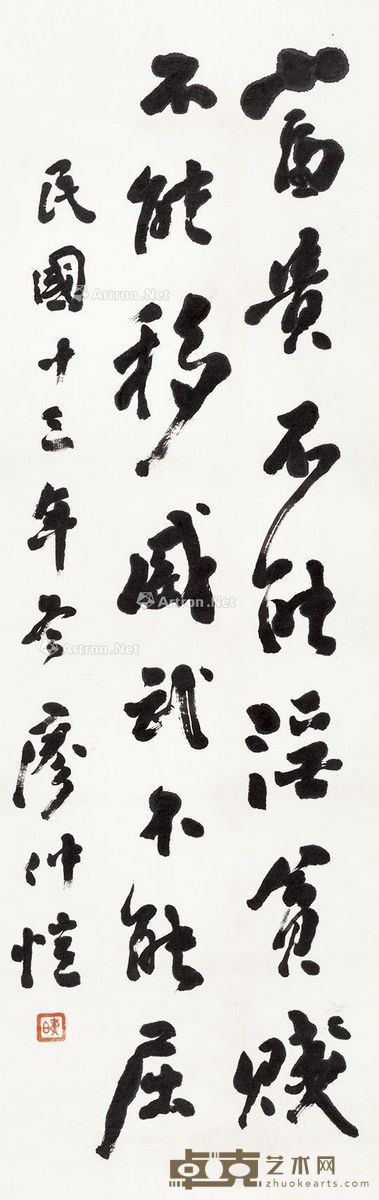 富貴不能淫貧賤
不能移威武不能屈
民國十三年冬廖仲愷
Artron.Net
Artron.Net
Artron.Net
Artron.Net
卓克艺术网
zhuokearts.com